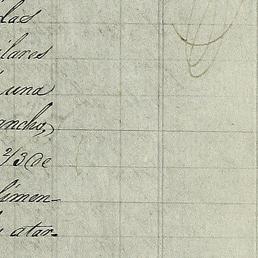 das
ilares
una
ancho,
2/3 de
limen-
atar-